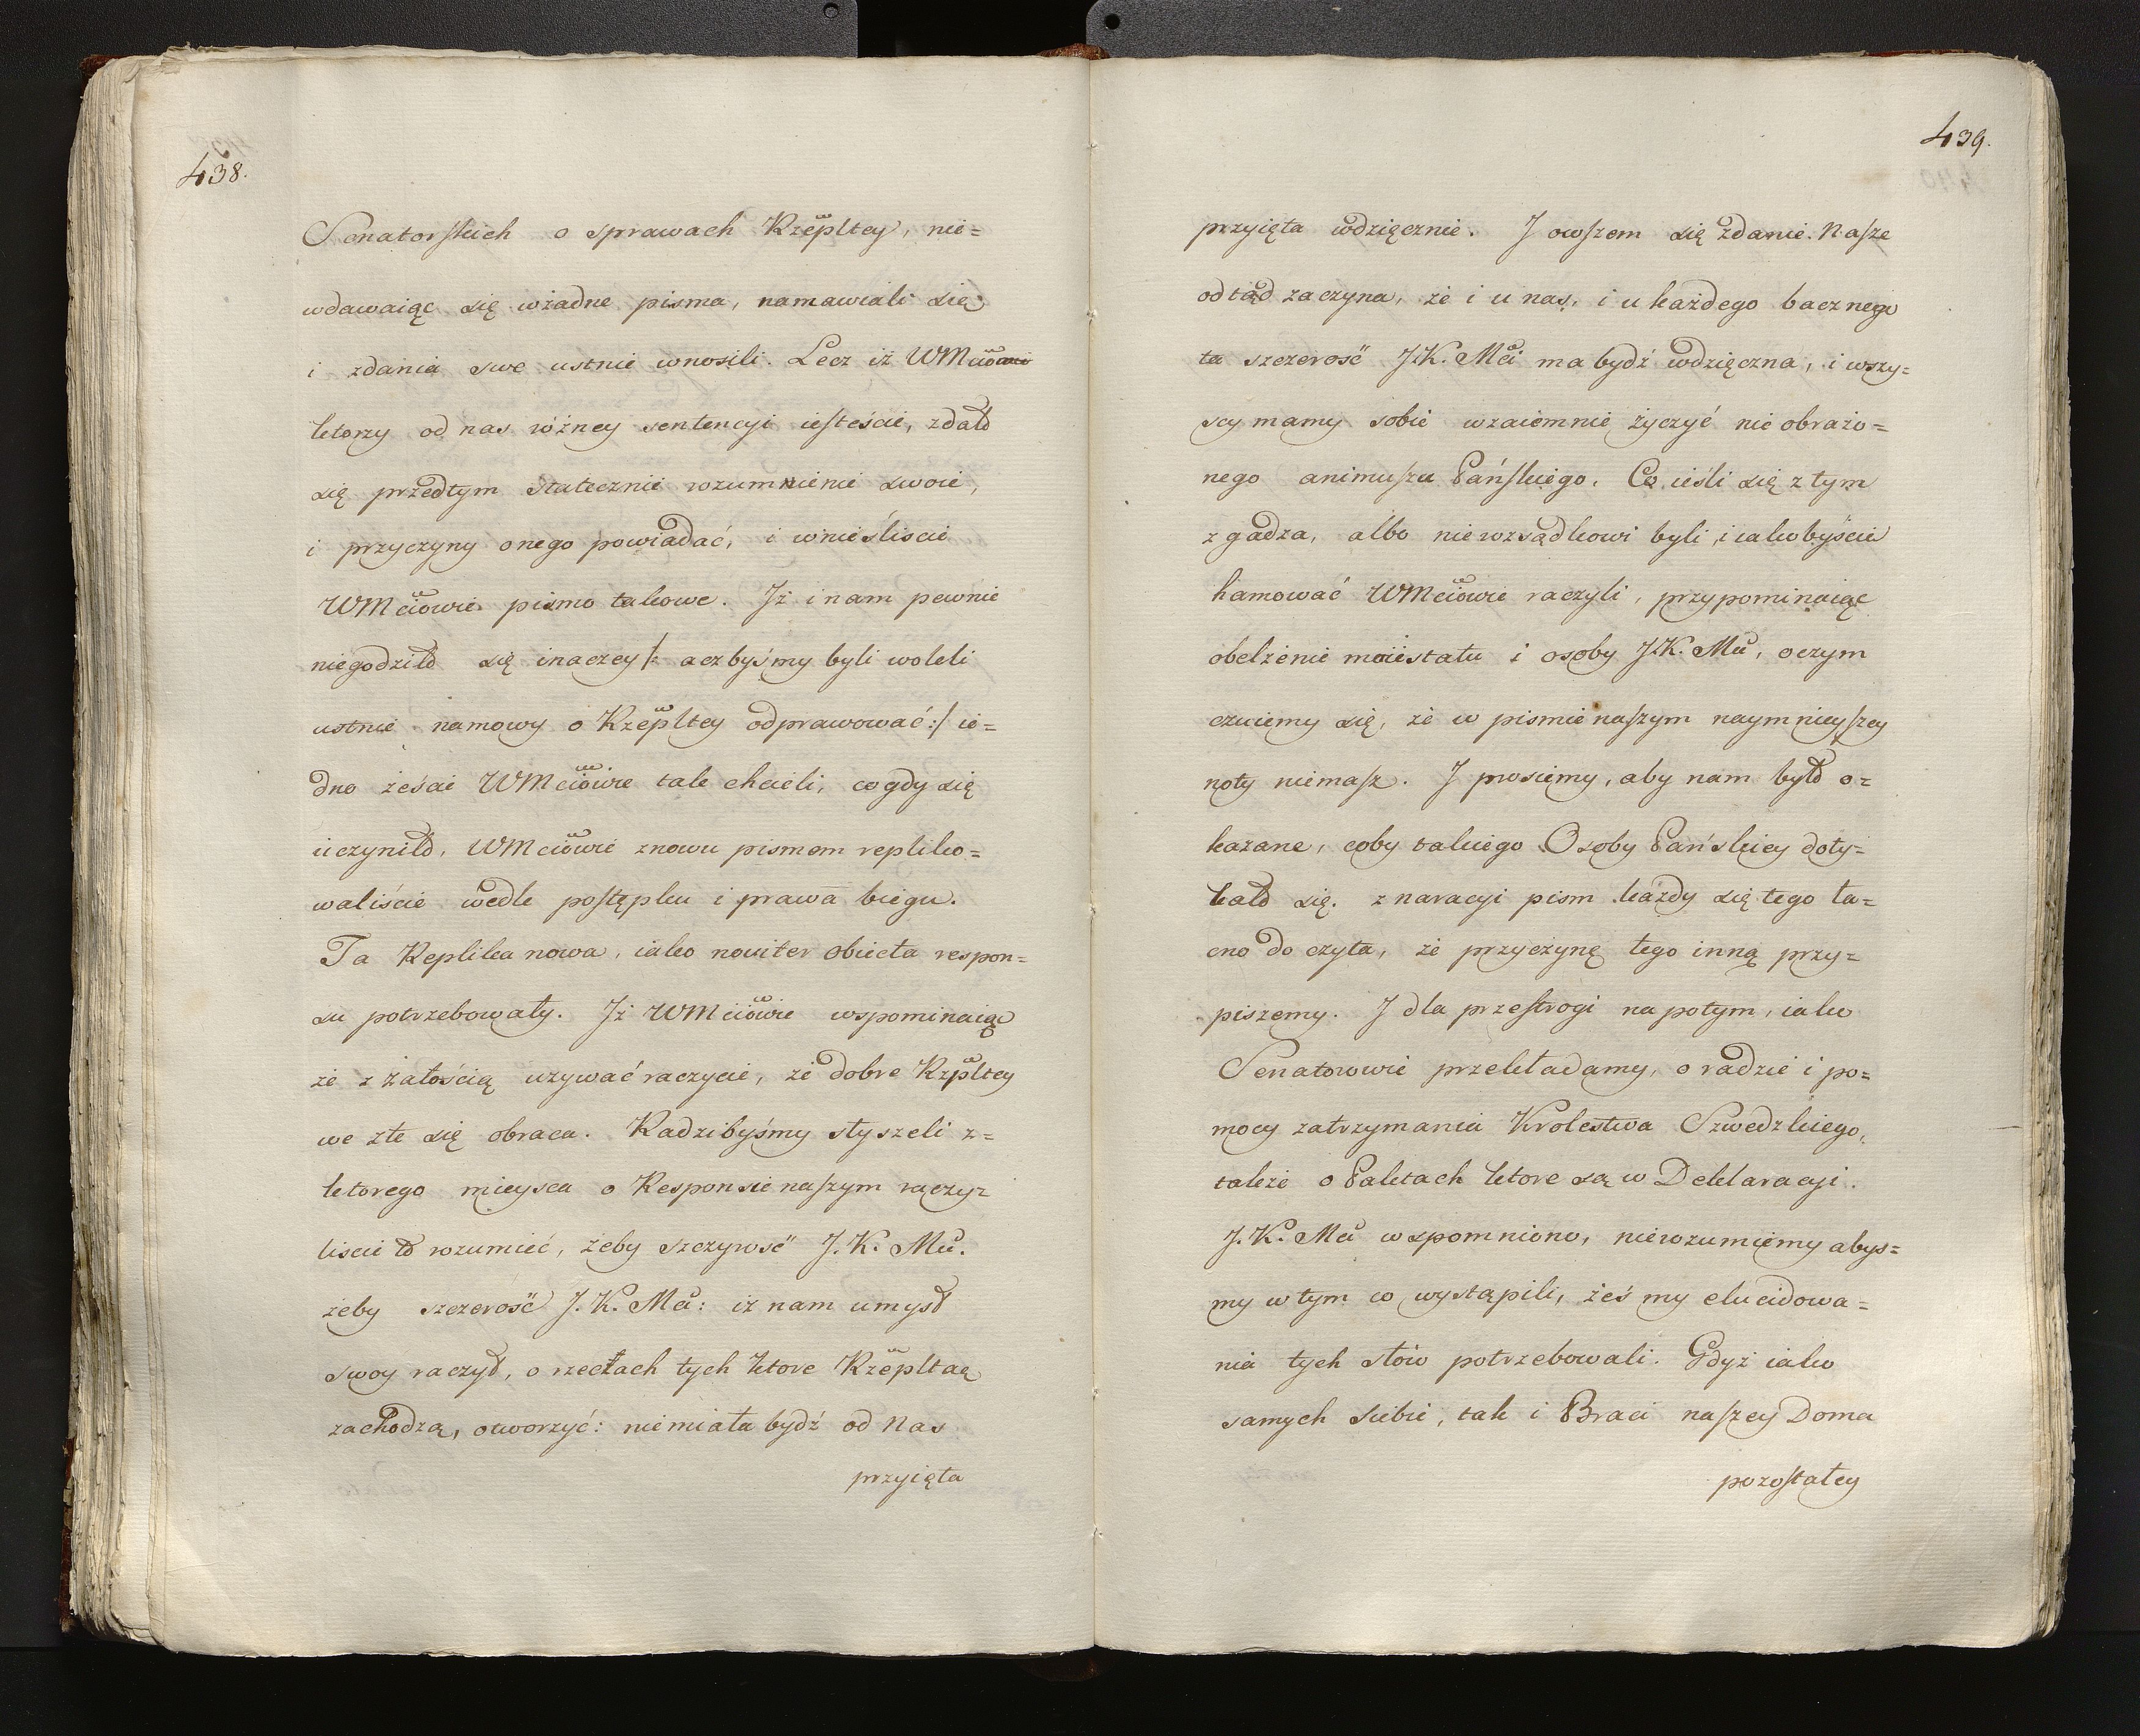 438.
Senatorskich o sprawach Rzepltey, nie=
wdawaiąc się wżadne pisma, namawiali się
i zdania swe ustnie wnosili. Lecz iż WMciowie
ktorzy od nas różney sentencyi iesteście, zdało
się przedtym statecznie rozumnienie swoie,
i przyczyny onego powiadać, i wnieśliscie
WMciowie pismo takowe. Iż i nam pewnie
niegodziło się inaczey /: aczbyśmy byli woleli
ustnie namowy o Rzepltey odprawować :/ ie=
dno żeście WMciowie tak chcieli, co gdy się
uczyniło, WMciowie znowu pismem repliko=
waliście wedle postępku i prawa biegu.
Ta Replika nowa, iako noviter obiecta respon=
su potrzebowały. Iż WMciowie wspominaiąc
że z żałością uzywać raczycie, że dobre Rzpltey
we złe się obraca. Radzibyśmy słyszeli z=
ktorego mieysca o Responsie naszym raczy=
liscie to rozumieć, żeby szczyrość J. K. Mci.
żeby szczerość J. K. Mci: iż nam umysł
swoy raczył, o rzeczach tych ktore Rzepltaą
zachodzą, otworzyć: niemiała bydź od nas
przyięta
439.
przyięta wdzięcznie. J owszem się zdanie nasze
odtąd zaczyna, że i u nas, i u każdego bacznego
ta szczerość J.K. Mci ma bydź wdzięczna, i wszy=
scy mamy sobie wzaiemnie życzyć nie obrażo=
nego animuszu Pańskiego. Co ieśli się z tym
zgadza, albo nierozsądkowi byli, iakobyście
hamować WMciowie raczyli, przypominaiąc
obelżenie maiestatu i osoby J.K. Mci, o czym
czuiemy się, że w pismie naszym naymnieyszey
noty niemasz. J prosiemy, aby nam było o=
kazane, coby takiego Osoby Pańskiey doty=
kało się. z naracyi pism każdy się tego ła=
cno do czyta, że przyczynę tego inną przy=
piszemy. J dla przestrogi napotym, iako
Senatorowie przekładamy, o radzie i po=
mocy zatrzymania Krolestwa Szwedzkiego,
także o Paktach ktore są w Deklaracyi.
J. K. Mci wspomniono, nierozumiemy abyś=
my w tym co wystąpili, żeś my elucidowa=
nia tych słów potrzebowali. Gdyż iako
samych siebie, tak i Braci naszey Doma
pozostałey